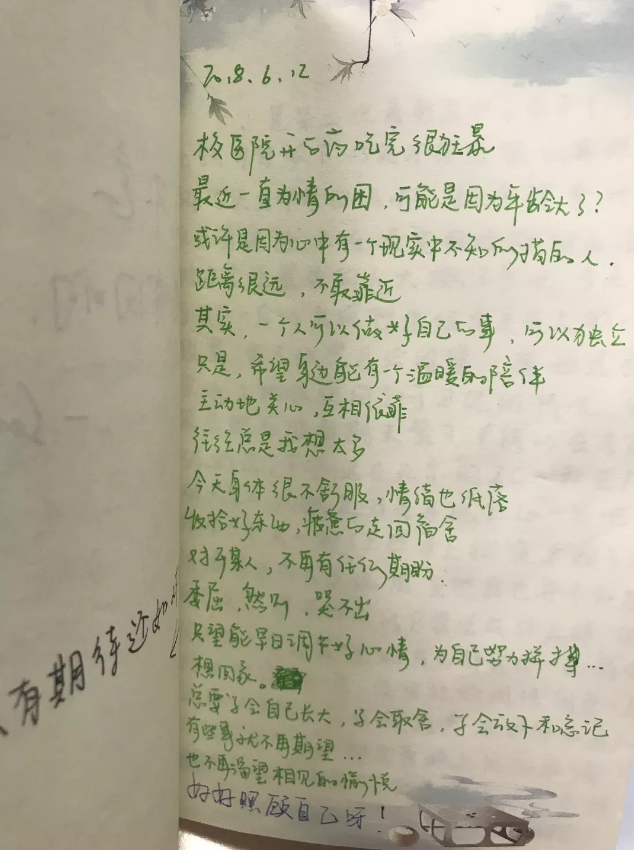 2018.6.12
校医院开的药吃完很狂暴
最近一直为情所困，可能是因为年龄大了？
或许是因为心中有一个现实中不知所措的人．
距离很远，不敢靠近
其实，一个人可以做好自己的事，可以独立
只是，希望身边能有一个温暖的陪伴
主动地关心，互相依靠
往往总是我想太多
今天身体很不舒服，情绪也低落
收拾好东西，疲惫的走回宿舍
对于某人，不再有任何期盼．
委屈，然而，哭不出
只望能早日调节好心情，为自己努力拼搏…
想回家。
总要学会自己长大，学会取舍，学会放下和忘记
有些事就不再期望…
也不再渴望相见的愉悦
好好照顾自己呀！
有期待还如